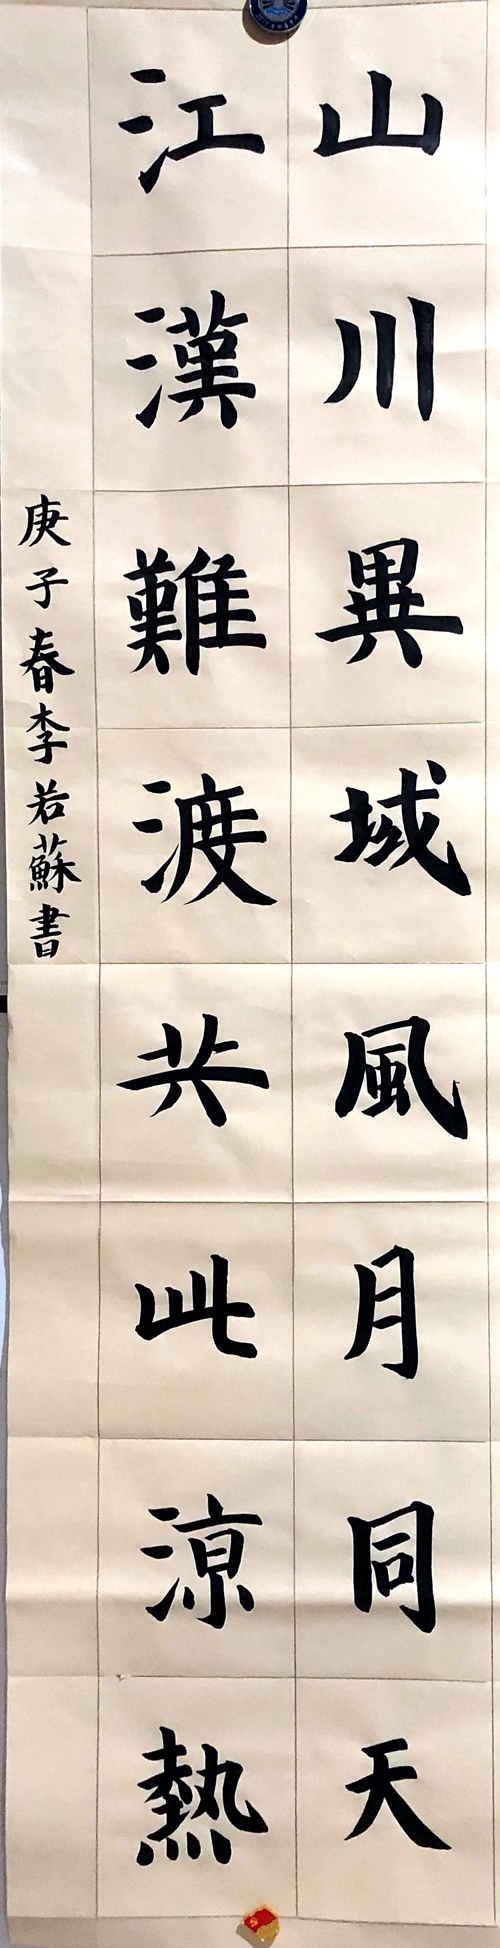 山川異域風月同天
江漢難渡共此涼熱
庚子春李若蘇書